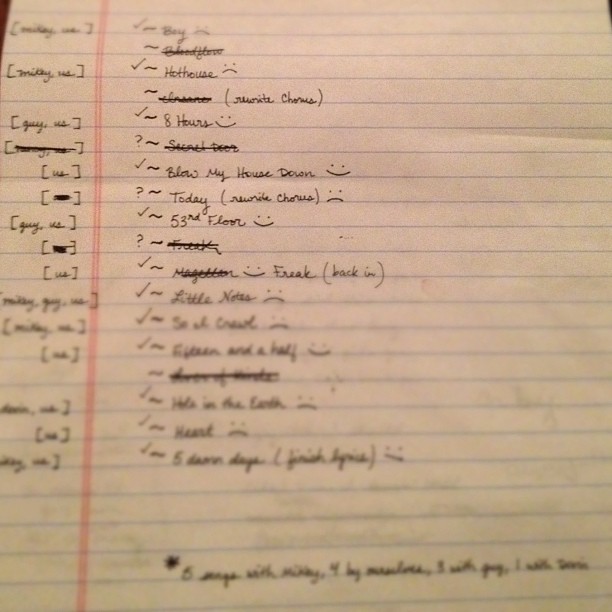 [mikey, us] ✓~ Boy :(
~ Bloodflow
[mikey, us] ✓~ Hothouse :(
~ Insane (rewrite chorus)
[guy, us] ✓~ 8 Hours :)
? ~ Secret Door
[us] ✓~ Blow My House Down :)
? ~ Today (rewrite chorus) :(
[guy, us] ✓~ 53rd Floor :)
? ~ Freak
[us] ✓~ :) Freak (back in)
mikey, guy, us] ✓~ Little Notes :(
[mikey, us] ✓~ So I Crawl :(
[us] ✓~ Fifteen and a half :)
~
devin, us] ✓~ Hole in the Earth :(
[us] ✓~ Heart :(
us] ✓~ 5 damn days (finish lyrics) :(
* 5 songs with mikey, 4 by ourselves, 3 with guy, 1 with